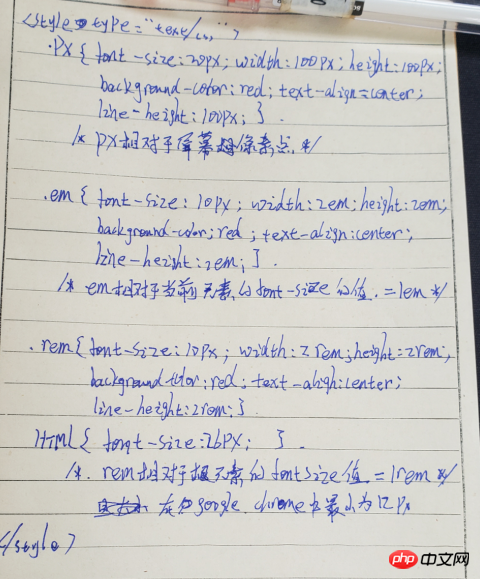 <style type="text/css">
.px{ font-size:20px; width:100px; height:100px;
background-color:red; text-align=center;
line-height:100px; }
/* px相对于屏幕像素点 */
.em{ font-size:10px; width:2em; height:2em;
background-color:red; text-align:center;
line-height:2em; }
/* em相对于当前元素的font-size的值.=1em */
.rem{ font-size:10px; width:2rem; height:2rem;
background-color:red; text-align:center;
line-height:2rem; }
Html{ font-size:26px; }
/*. rem相对于根元素的fontsize值.=1rem */
在 google chrome中最小为12px
</style>
php 中文网